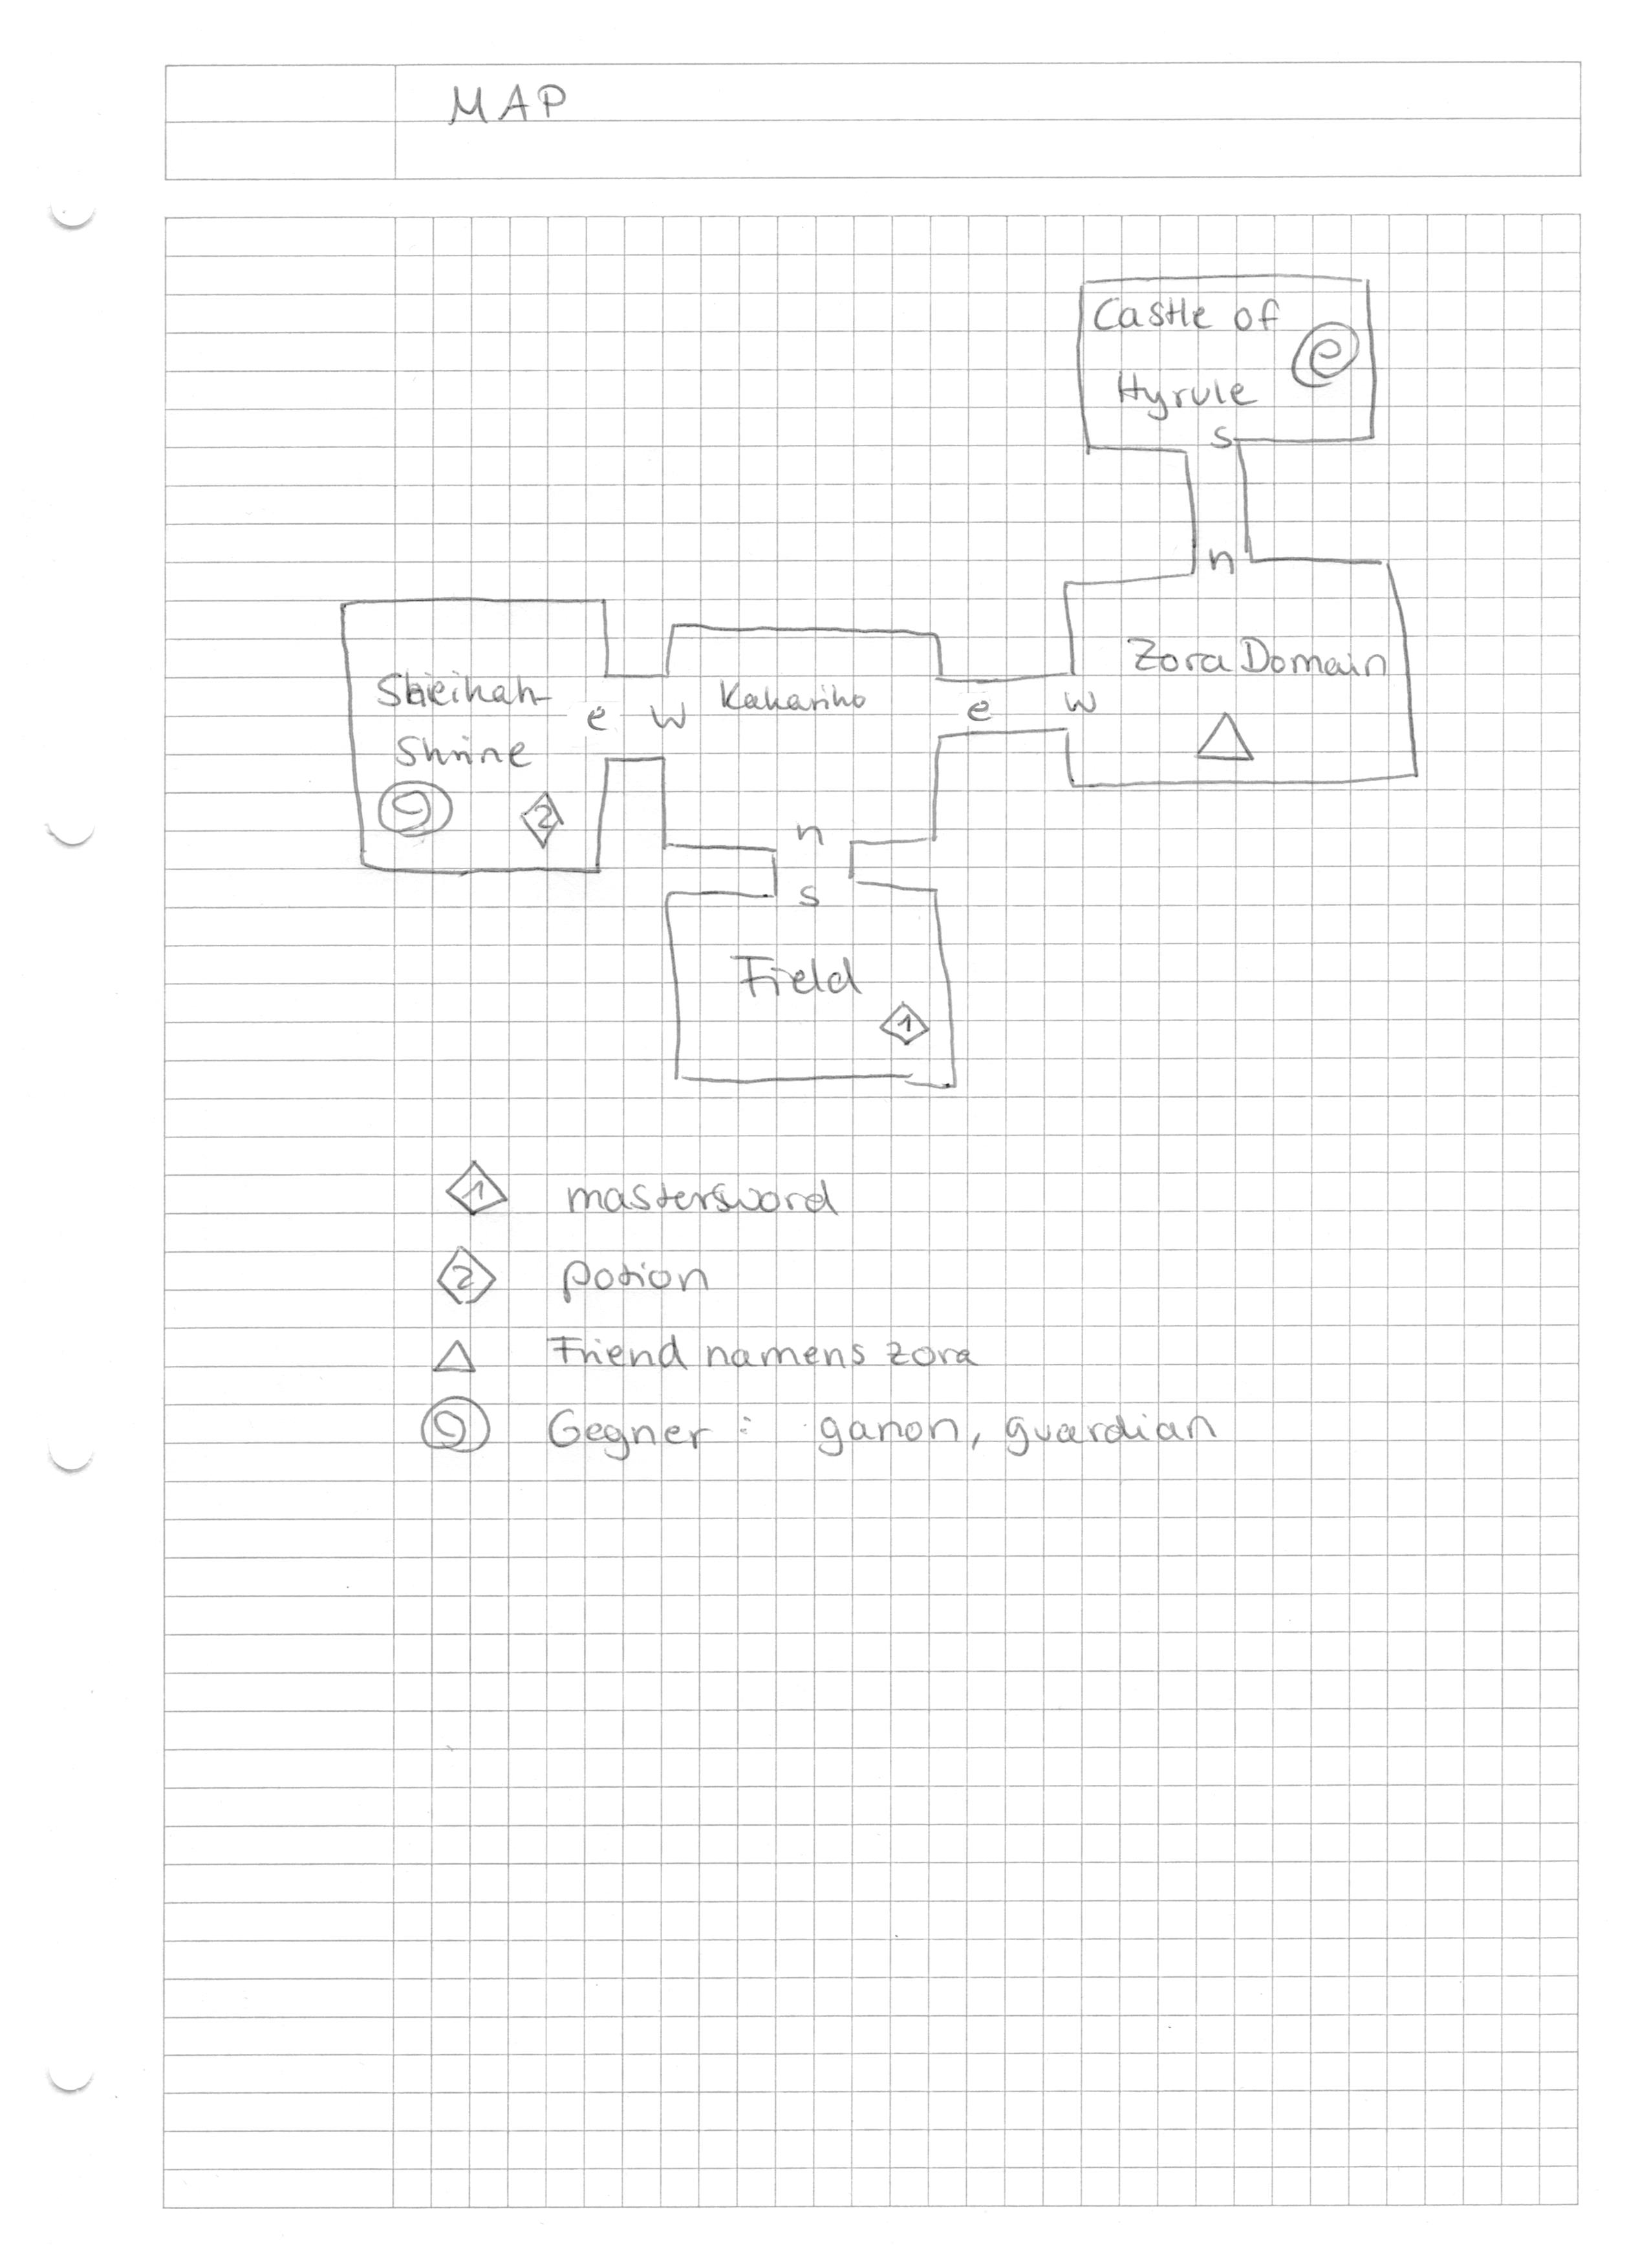 MAP
Castle of
Hyrule
e
s
n
Zora Domain
Sheikah
Shrine
e
w
Kakariko
e
w
2
n
s
Field
1
1 mastersword
2 potion
Friend namens zora
Gegner: ganon, guardian